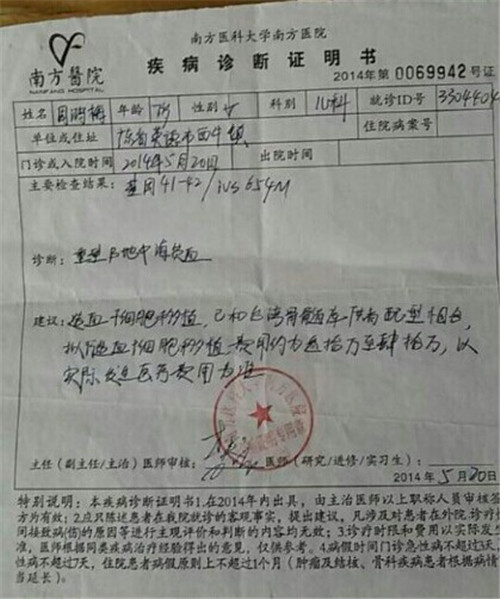 南方医科大学南方医院
南方醫院
NANFANG HOSPITAL
疾病诊断证明书
2014年第0069942号证
姓名 年龄 性别 女 科别 儿科 就诊ID号 3304404
单位或住址 广东省英德市西牛镇 住院病案号
门诊或入院时间 2014年5月20日 出院时间
主要检查结果: 基因41-42/IVS654M
诊断: 重型β地中海贫血
建议: 造血干细胞移植,已和台湾骨髓库供者配型相合,
拟行造血干细胞移植,费用约为叁拾万至肆拾万,以
实际发生医疗费用为准
主任(副主任/主治)医师审核: 医师(研究/进修/实习生):
2014年5月20日
特别说明:本疾病诊断证明书1.在2014年内出具,由主治医师以上职称人员审核签
方为有效;2.应只陈述患者在我院就诊的客观事实,提出建议,凡涉及对患者在外院、诊疗
间接致病(伤)的原因等进行主观评价和判断的内容均无效;3.诊疗时限和费用以实际发
准,医师根据同类疾病治疗经验得出的意见,仅供参考。4.病假时间门诊急性病不超过3天
性病不超过7天,住院患者病假原则上不超过1个月(肿瘤及结核、骨科疾患者根据病情
当延长)。